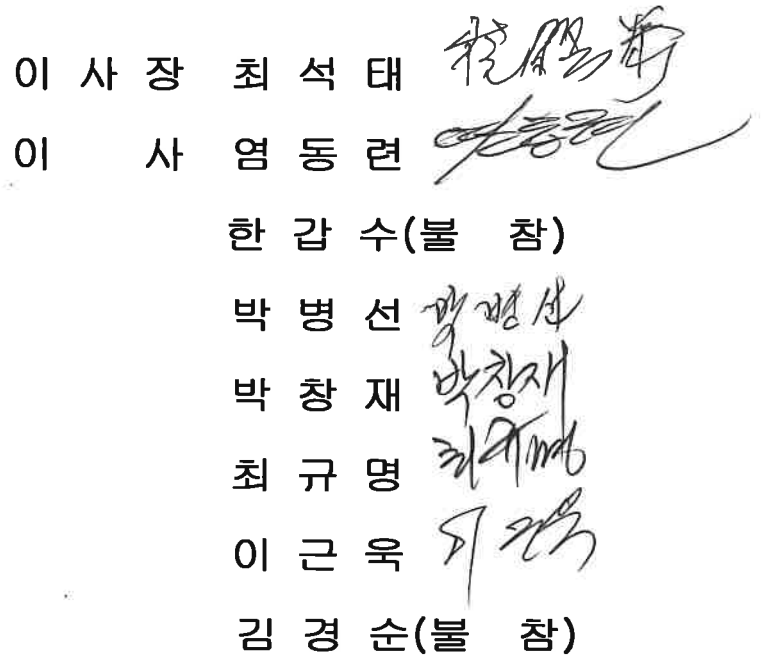 이 사 장 최 석 태
이 사 염 동 련 염동련
한 갑 수(불 참)
박 병 선 박병선
박 창 재 박창재
최 규 명 최규명
이 근 욱 이근욱
김 경 순(불 참)